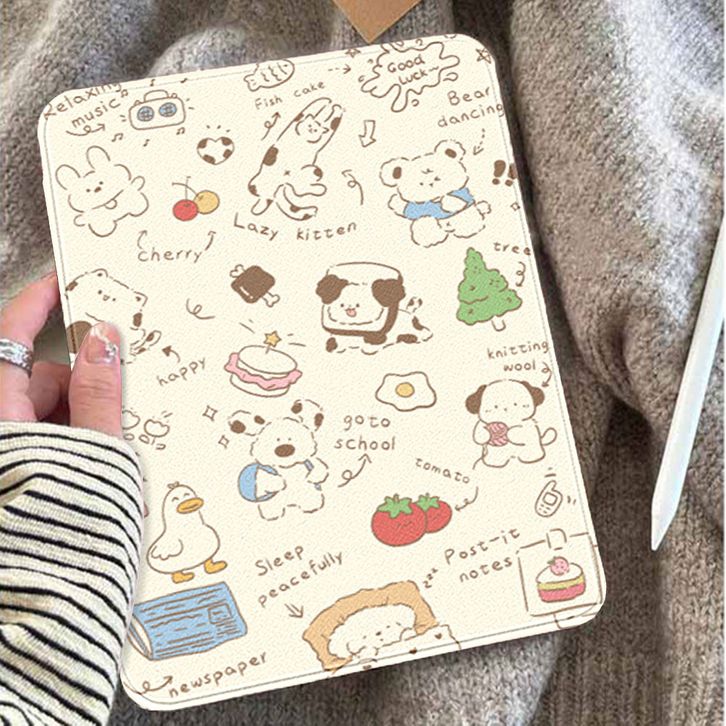 Relaxing
music
Fish cake
Good
Luck
Bear
dancing
Cherry
Lazy kitten
tree
happy
knitting
wool
goto
school
tomato
Sleep
peacefully
zzz
Post-it
notes
newspaper